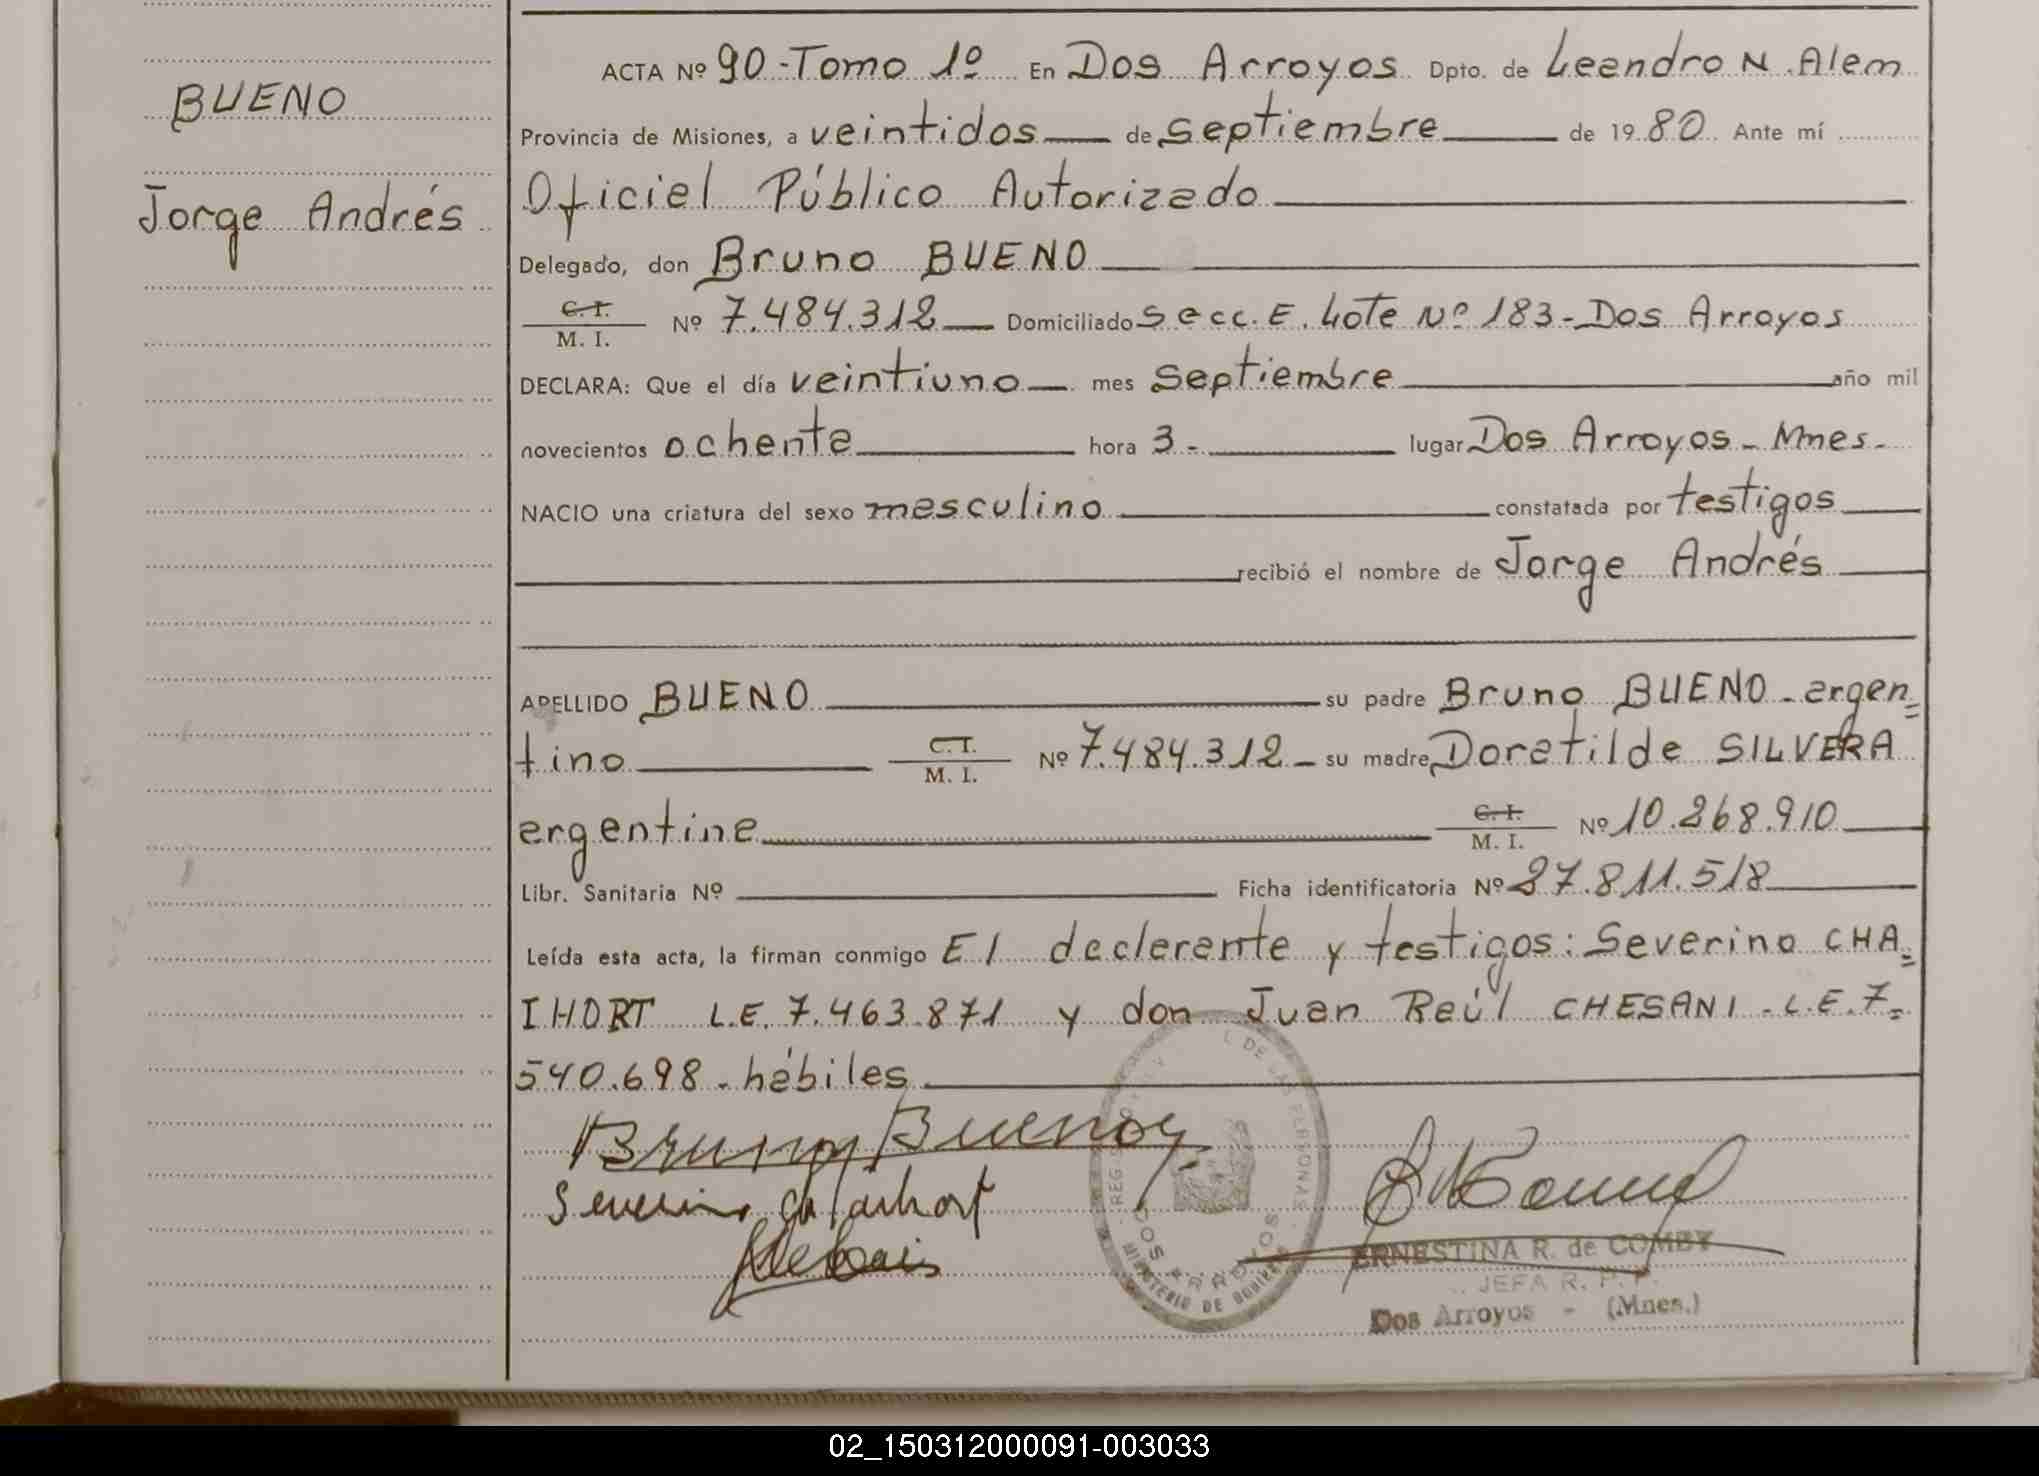 BUENO
Jorge Andrés
ACTA Nº 90 - Tomo 1º En Dos Arroyos Dpto. de Leandro N. Alem
Provincia de Misiones, a veintidos de septiembre de 1980. Ante mí
Oficial Público Autorizado
Delegado, don Bruno BUENO
C. I.
M. I. Nº 7.484.312 Domiciliado Secc. E. Lote Nº 183 - Dos Arroyos
DECLARA: Que el día veintiuno mes septiembre año mil
novecientos ochenta hora 3.- lugar Dos Arroyos - Mnes.-
NACIO una criatura del sexo masculino constatada por testigos
recibió el nombre de Jorge Andrés
APELLIDO BUENO su padre Bruno BUENO - argen=
tino C. I. M. I. Nº 7.484.312 - su madre Doratilde SILVERA
argentina C. I. M. I. Nº 10.268.910
Libr. Sanitaria Nº Ficha identificatoria Nº 27.811.518
Leída esta acta, la firman conmigo El declarante y testigos: Severino CHA=
IHORT L.E. 7.463.871 y don Juan Raúl CHESANI - L.E. 7.=
540.698 - hábiles
Bruno Bueno
Severino
DOS ARROYOS
MINISTERIO DE GOBIERNO
ERNESTINA R. de COMBY
JEFA R. P. P.
Dos Arroyos - (Mnes.)
02_150312000091-003033